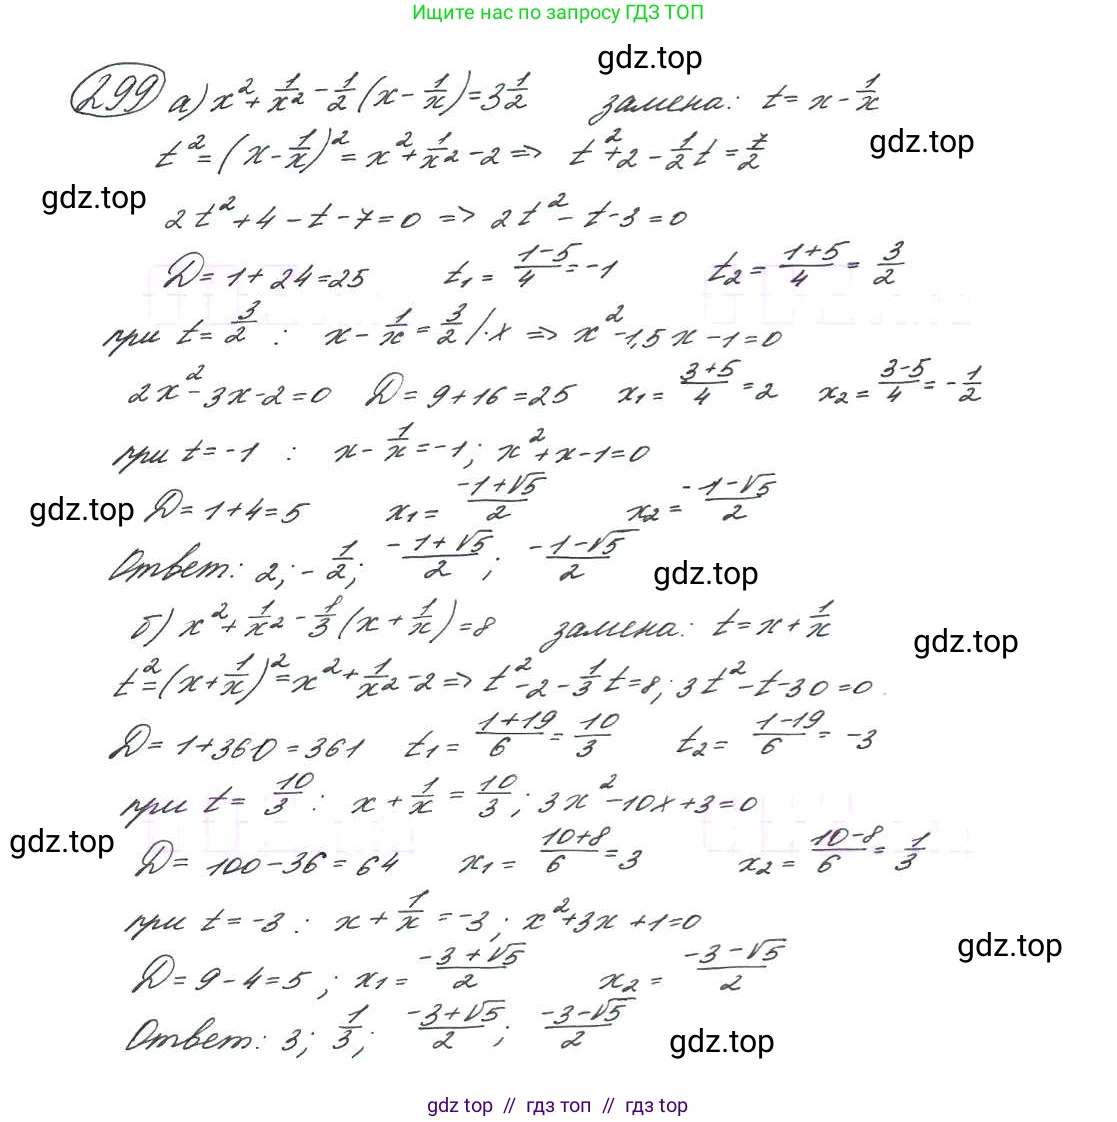 Ищите нас по запросу ГДЗ ТОП
gdz.top
299 а) x² + 1/x² - 1/2 (x - 1/x) = 3 1/2 замена: t = x - 1/x
t² = (x - 1/x)² = x² + 1/x² - 2 => t² + 2 - 1/2 t = 7/2
gdz.top
gdz.top
2t² + 4 - t - 7 = 0 => 2t² - t - 3 = 0
D = 1 + 24 = 25 t₁ = (1-5)/4 = -1 t₂ = (1+5)/4 = 3/2
при t = 3/2 : x - 1/x = 3/2 /·x => x² - 1,5x - 1 = 0
2x² - 3x - 2 = 0 D = 9 + 16 = 25 x₁ = (3+5)/4 = 2 x₂ = (3-5)/4 = -1/2
при t = -1 : x - 1/x = -1; x² + x - 1 = 0
gdz.top
gdz.top
D = 1 + 4 = 5 x₁ = (-1+√5)/2 x₂ = (-1-√5)/2
Ответ: 2; -1/2; (-1+√5)/2; (-1-√5)/2
gdz.top
б) x² + 1/x² - 1/3 (x + 1/x) = 8 замена: t = x + 1/x
gdz.top
t² = (x + 1/x)² = x² + 1/x² - 2 => t² - 2 - 1/3 t = 8; 3t² - t - 30 = 0
D = 1 + 360 = 361 t₁ = (1+19)/6 = 10/3 t₂ = (1-19)/6 = -3
при t = 10/3 : x + 1/x = 10/3; 3x² - 10x + 3 = 0
gdz.top
D = 100 - 36 = 64 x₁ = (10+8)/6 = 3 x₂ = (10-8)/6 = 1/3
при t = -3 : x + 1/x = -3; x² + 3x + 1 = 0
gdz.top
D = 9 - 4 = 5; x₁ = (-3+√5)/2 x₂ = (-3-√5)/2
Ответ: 3; 1/3; (-3+√5)/2; (-3-√5)/2
gdz.top
gdz top // гдз топ // гдз top